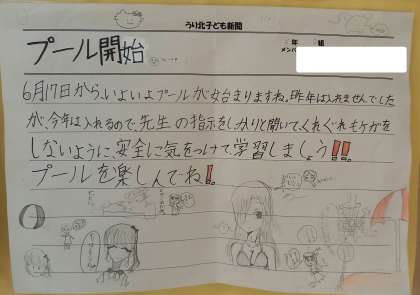 うり北子ども新聞
プール開始
年 組
メンバー
6月17日から、いよいよプールが始まりますね。昨年は入れませんでした
が、今年は入れるので、先生の指示をしっかりと聞いて、くれぐれもケガを
しないように、安全に気をつけて学習しましょう!!
プールを楽しんでね!!